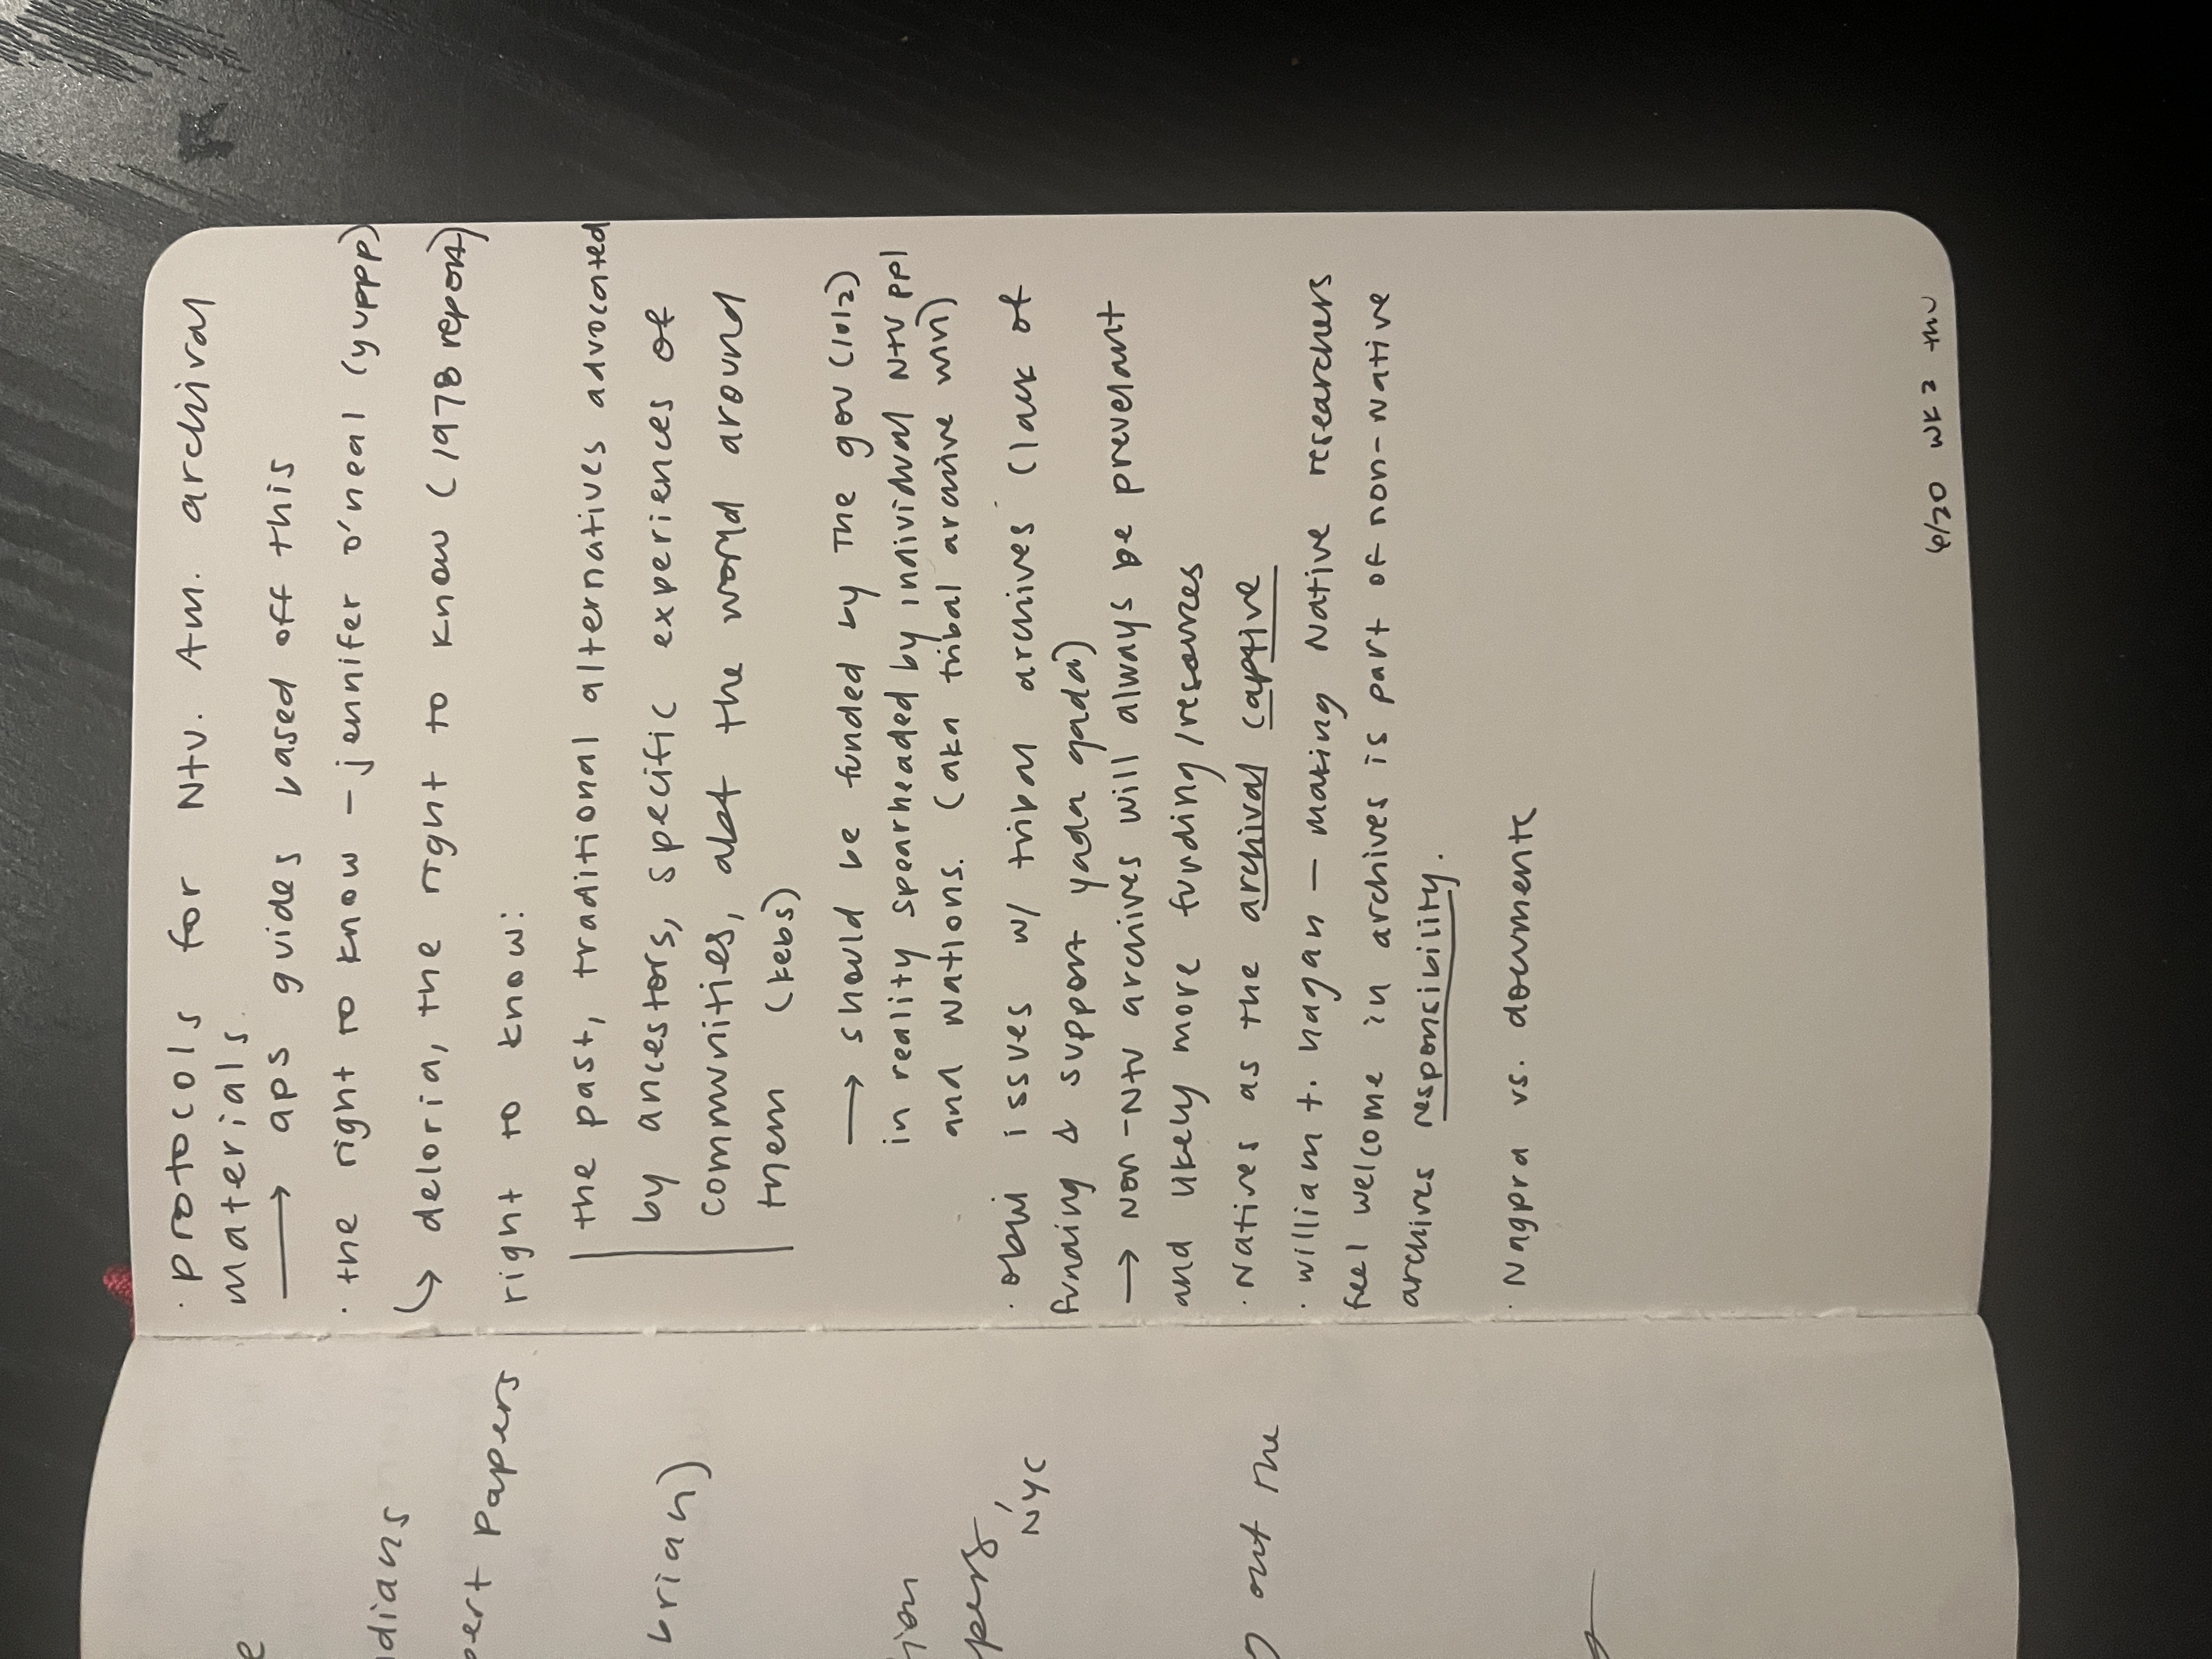 e
dians
pert papers
brian)
ion
pers,
NYC
g out the
· protocols for Ntv. Am. archival
materials.
→ aps guides based off this
· the right to know – jennifer o'neal (yuppp)
↳ deloria, the right to know (1978 report)
right to know:
the past, traditional alternatives advocated
by ancestors, specific experiences of
communities, abt the world around
them (kebs)
→ should be funded by the gov (lolz)
in reality spearheaded by individual Ntv ppl
and Nations. (aka tribal archive mvn)
· obvi issues w/ tribal archives (lack of
funding & support yada yada)
→ Non-Ntv archives will always be prevelant
and likely more funding/resources
· Natives as the archival captive
· william t. hagan – making Native researchers
feel welcome in archives is part of non-Native
archives responsibility.
· Nagpra vs. documents
6/20 wk 2 thu